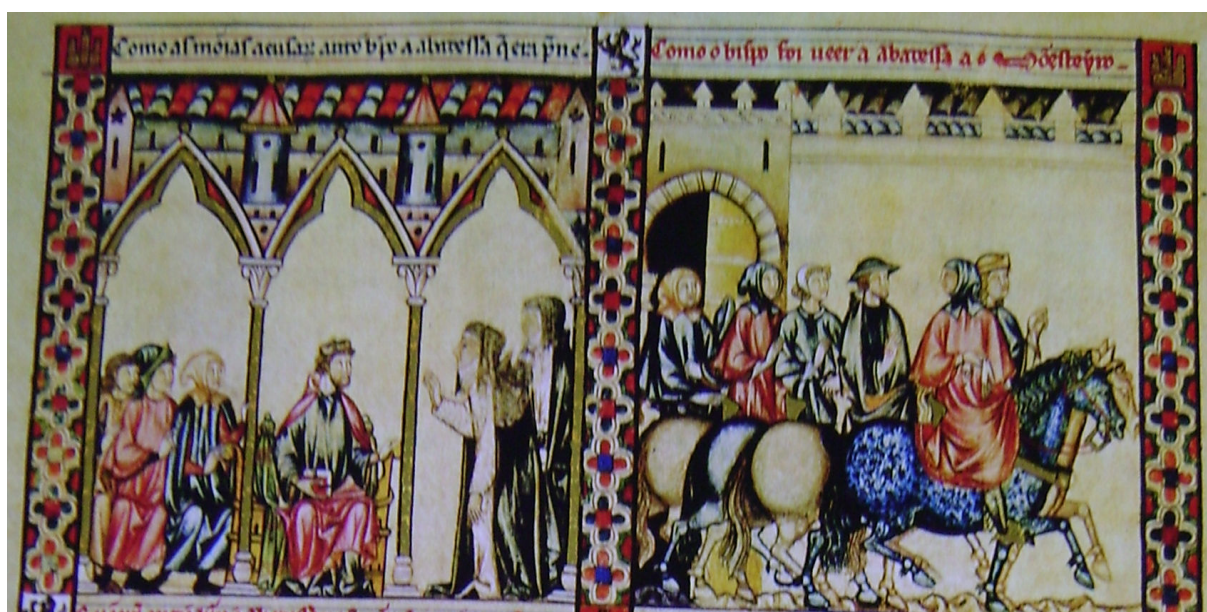 Como as mõias acusarõ anto bp̃o a abatessa q̃ era p̃ne
Como o bispo foi ueer a abatessa a o mõesteyro